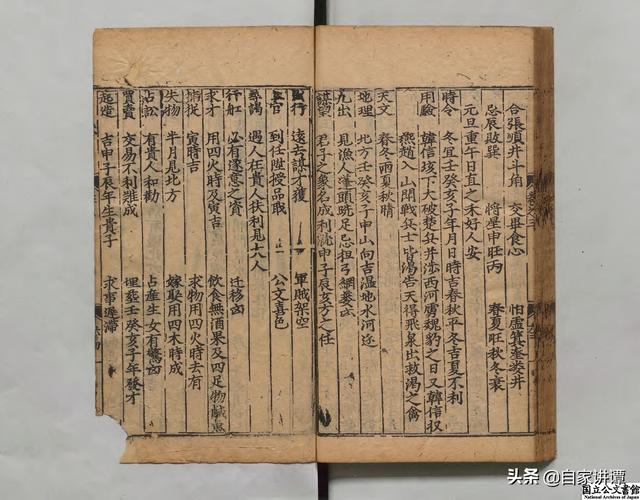 合張須井斗角 交畢食心 怕虛箕奎娄井
忌辰戌巽 將星申旺丙 春夏旺秋冬衰
元旦重午日直之未好人安
時令 冬宜壬癸亥子年月日時吉春秋平冬吉夏不利
用驗 韓信垓下大破楚兵并涉西河虜魏豹之日又韓信収
燕趙入山閗戰兵士皆渴告天得飛泉出救渴之禽
天文 春冬雨夏秋晴
地理 北方壬癸亥子申山向吉温地水河迯
九出 見漁人蓬頭跣足忌担弓網蔞
謀望 君子之象名成利就申子辰亥方之任
出行 遠去謀才獲 軍賊架空
上官 到任陞授品職 公文喜色
尋謁 遇人在貴人扶利見大人
行舡 必有遂意之寳 迁移凶
求才 用四火時及寅吉 飲食無酒果及四足物鹹
寅時吉 求物用四火時去有
失物 半月見北方 嫁娶用四木時成
占訟 有貴人和勸 占產生女有驚凶
買賣 交易不利難成 埋葬壬癸亥子年發才
起造 吉申子辰年生貴子 求事遲滯
头条 @自家讲谭
国立公文書館
National Archives of Japan